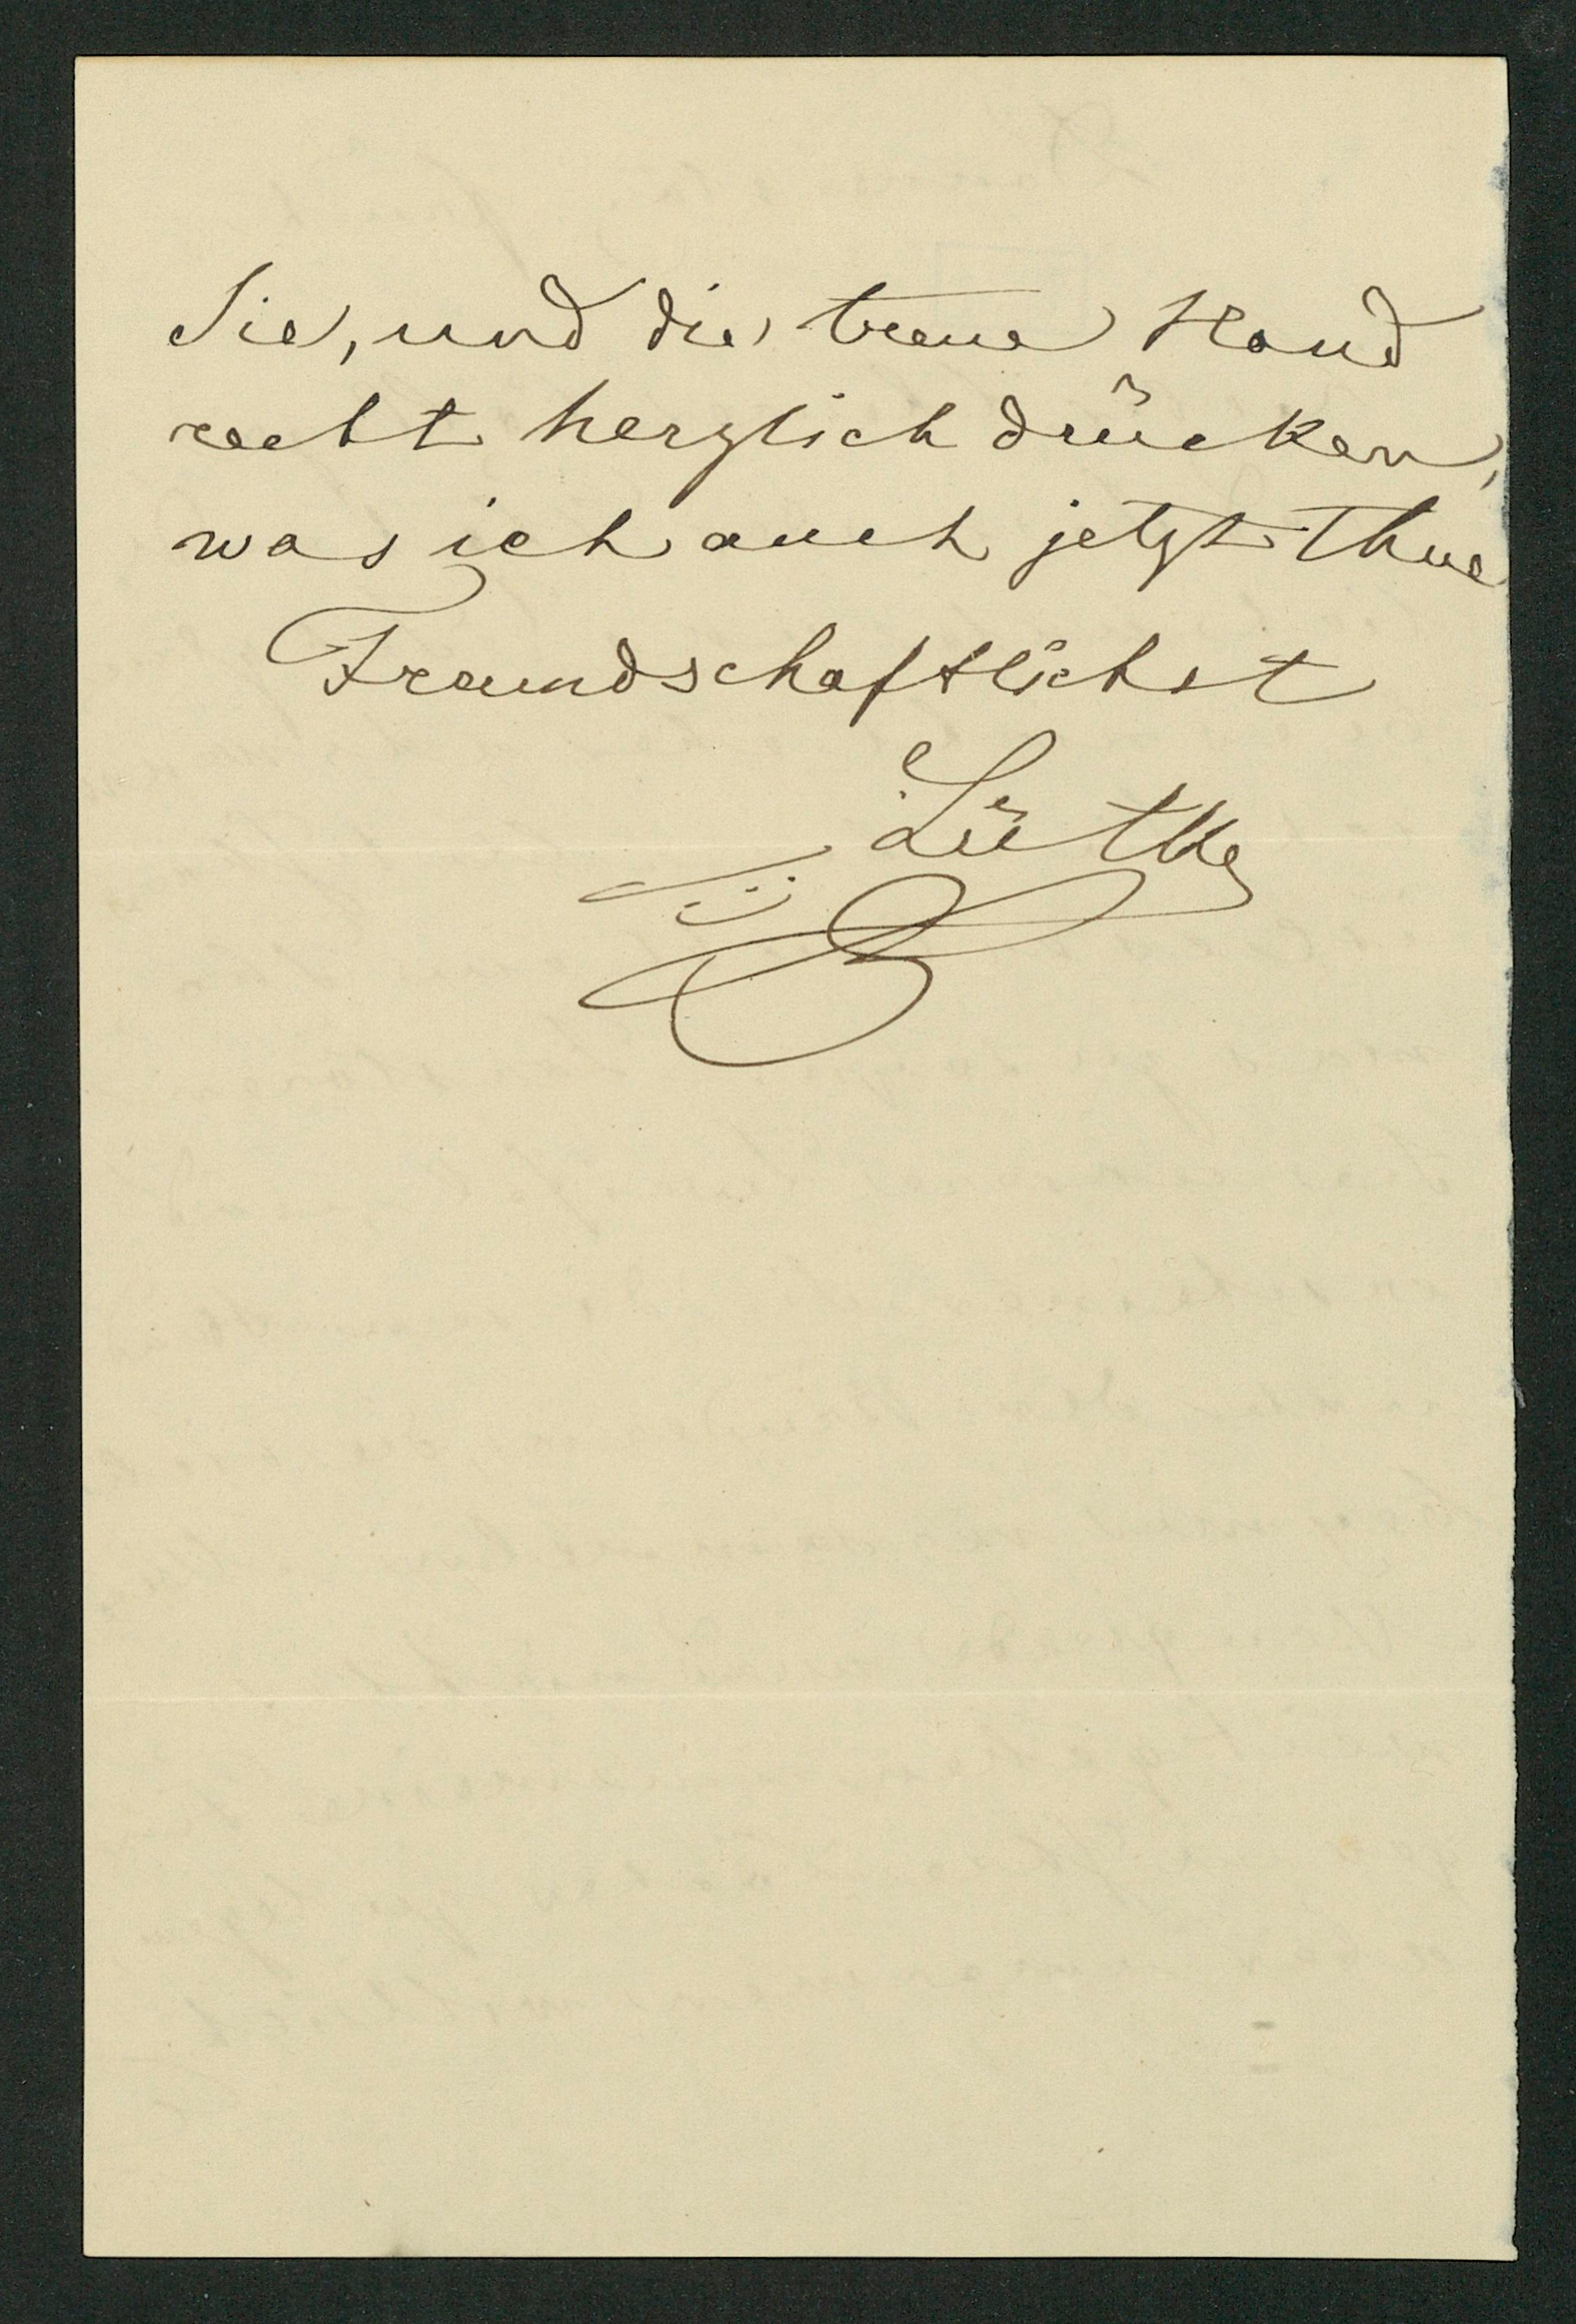 Sie, und die treue Hand
recht herzlich drücken,
was ich auch jetzt thue
Freundschaftlichst